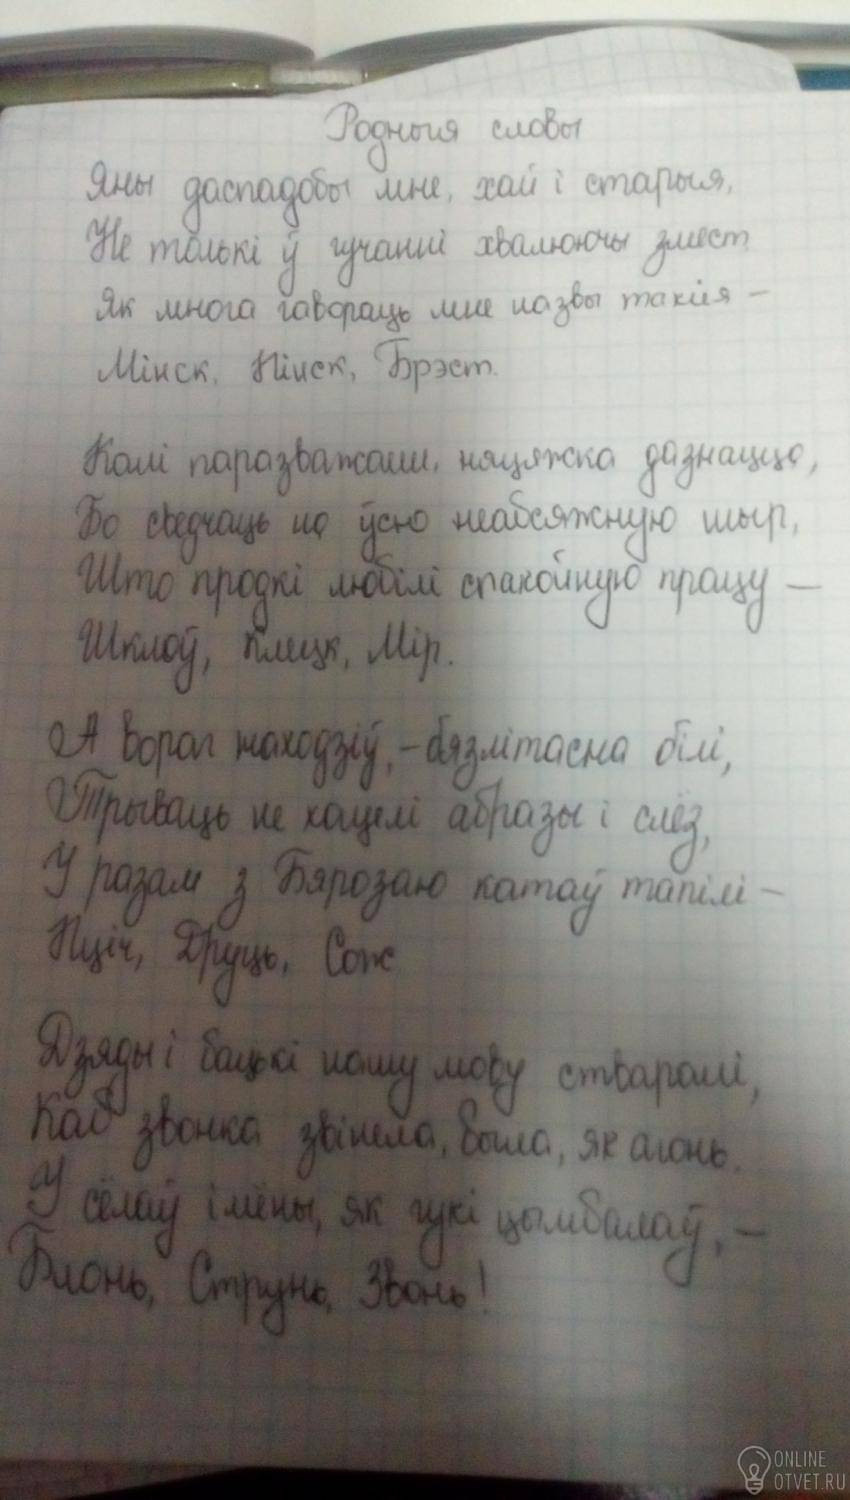 Родныя словы
Яны даспадобы мне, хай і старыя,
Не толькі ў гучанні хвалюючы змест.
Як многа гавораць мне назвы такія –
Мінск, Пінск, Брэст.
Калі паразважаеш, няцяжка дазнацца,
Бо сведчаць на ўсю неабсяжную шыр,
Што продкі любілі спакойную працу –
Шклоў, Клецк, Мір.
А вораг находзіў, – бязлітасна білі,
Трываць не хацелі абразы і слёз,
У разам з Бярозаю катаў тапілі –
Пціч, Друць, Сож
Дзяды і бацькі нашу мову стваралі,
Каб звонка звінела, была, як агонь.
У сёлаў імёны, як гукі цымбалаў, –
Блонь, Струнь, Звонь!
ONLINE
OTVET.RU